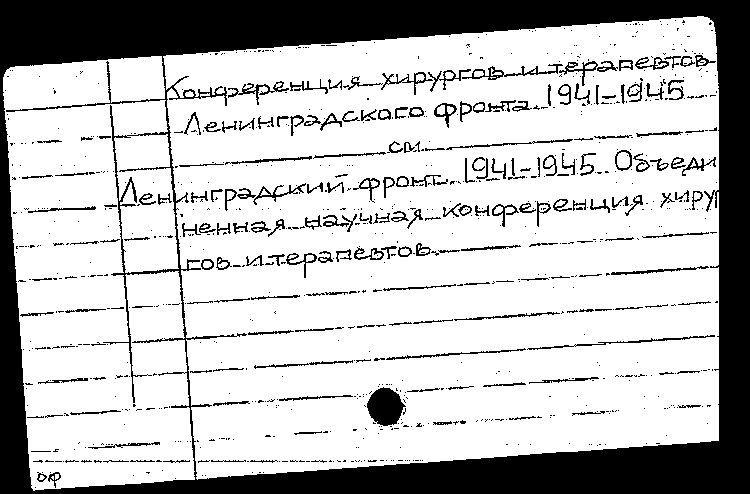 Конференция хирургов и терапевтов
Ленинградского фронта. 1941-1945
см.
Ленинградский фронт. 1941-1945. Объеди
ненная научная конференция хирур
гов и терапевтов.
оф